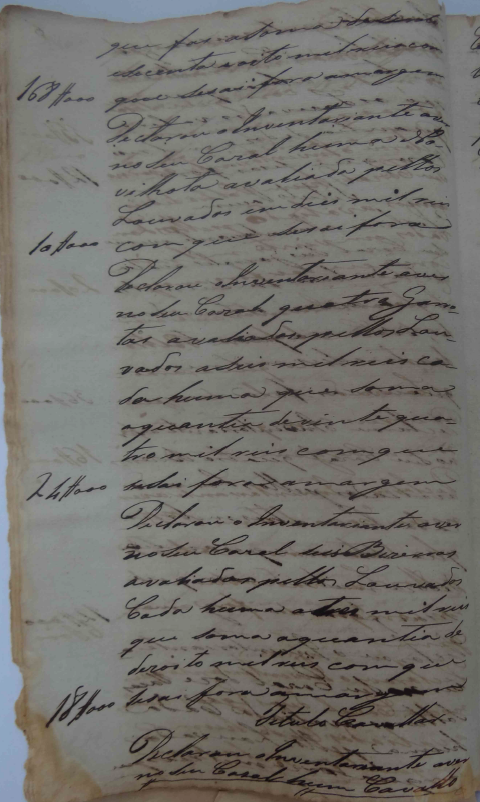 que faz a soma de sento
e secenta e oito mil reis com
168$000 que se sai fora a margem
Declarou o Inventariante aver
no seu Cazal huma
vilhota avaliada pellos
Louvados em deis mil reis
10$000 com que se sai fora
Declarou o Inventariante aver
no seu Cazal quatro Gar-
tas avaliadas pellos Lou-
vados a seis mil reis ca-
da huma que soma
a quantia de vinte qua-
tro mil reis com que
24$000 se sai fora a margem
Declarou o Inventariante aver
no seu Cazal seis Bezerras
avaliadas pellos Louvados
Cada huma a tres mil reis
que soma a quantia de
dezoito mil reis com que
18$000 se sai fora a margem
Titulo Cavallar
Declarou o Inventariante aver
no seu Cazal hum Cavallo